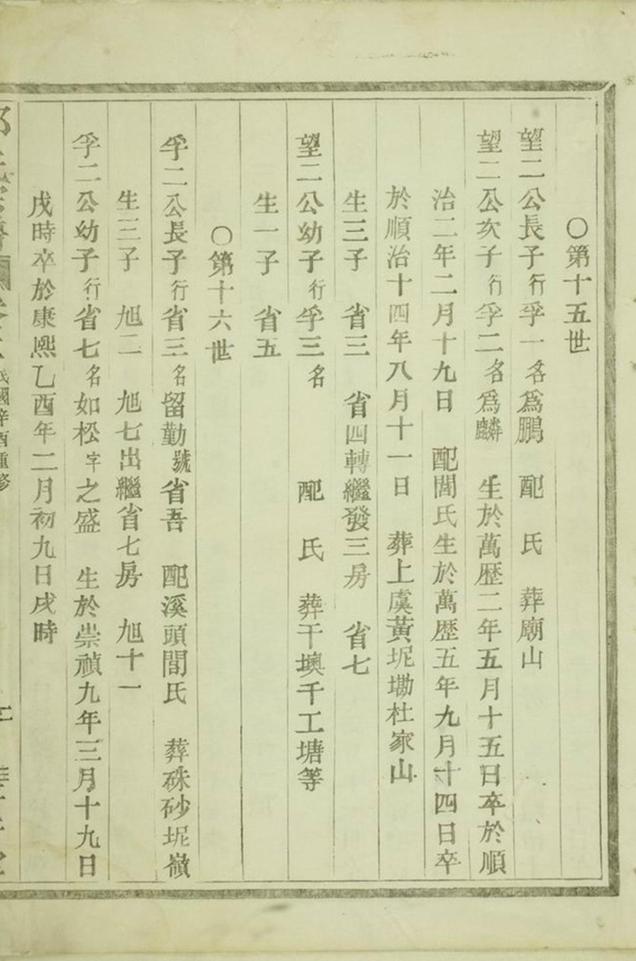 〇第十五世
望二公長子行孚一名爲鵬　配　氏　葬廟山
望二公次子行孚二名爲麟　生於萬歷二年五月十五日卒於順
治二年二月十九日　配閭氏生於萬歷五年九月十四日卒
於順治十四年八月十一日　葬上虞黃坭墈杜家山
生三子　省三　省四轉繼發三房　省七
望二公幼子行孚三名　　配　氏　葬干墺千工塘等
生一子　省五
〇第十六世
孚二公長子行省三名留勤號省吾　配溪頭閭氏　葬硃砂坭嶺
生三子　旭二　旭七出繼省七房　旭十一
孚二公幼子行省七名如松字之盛　生於崇禎九年三月十九日
戌時卒於康熙乙酉年二月初九日戌時
民國辛酉重修